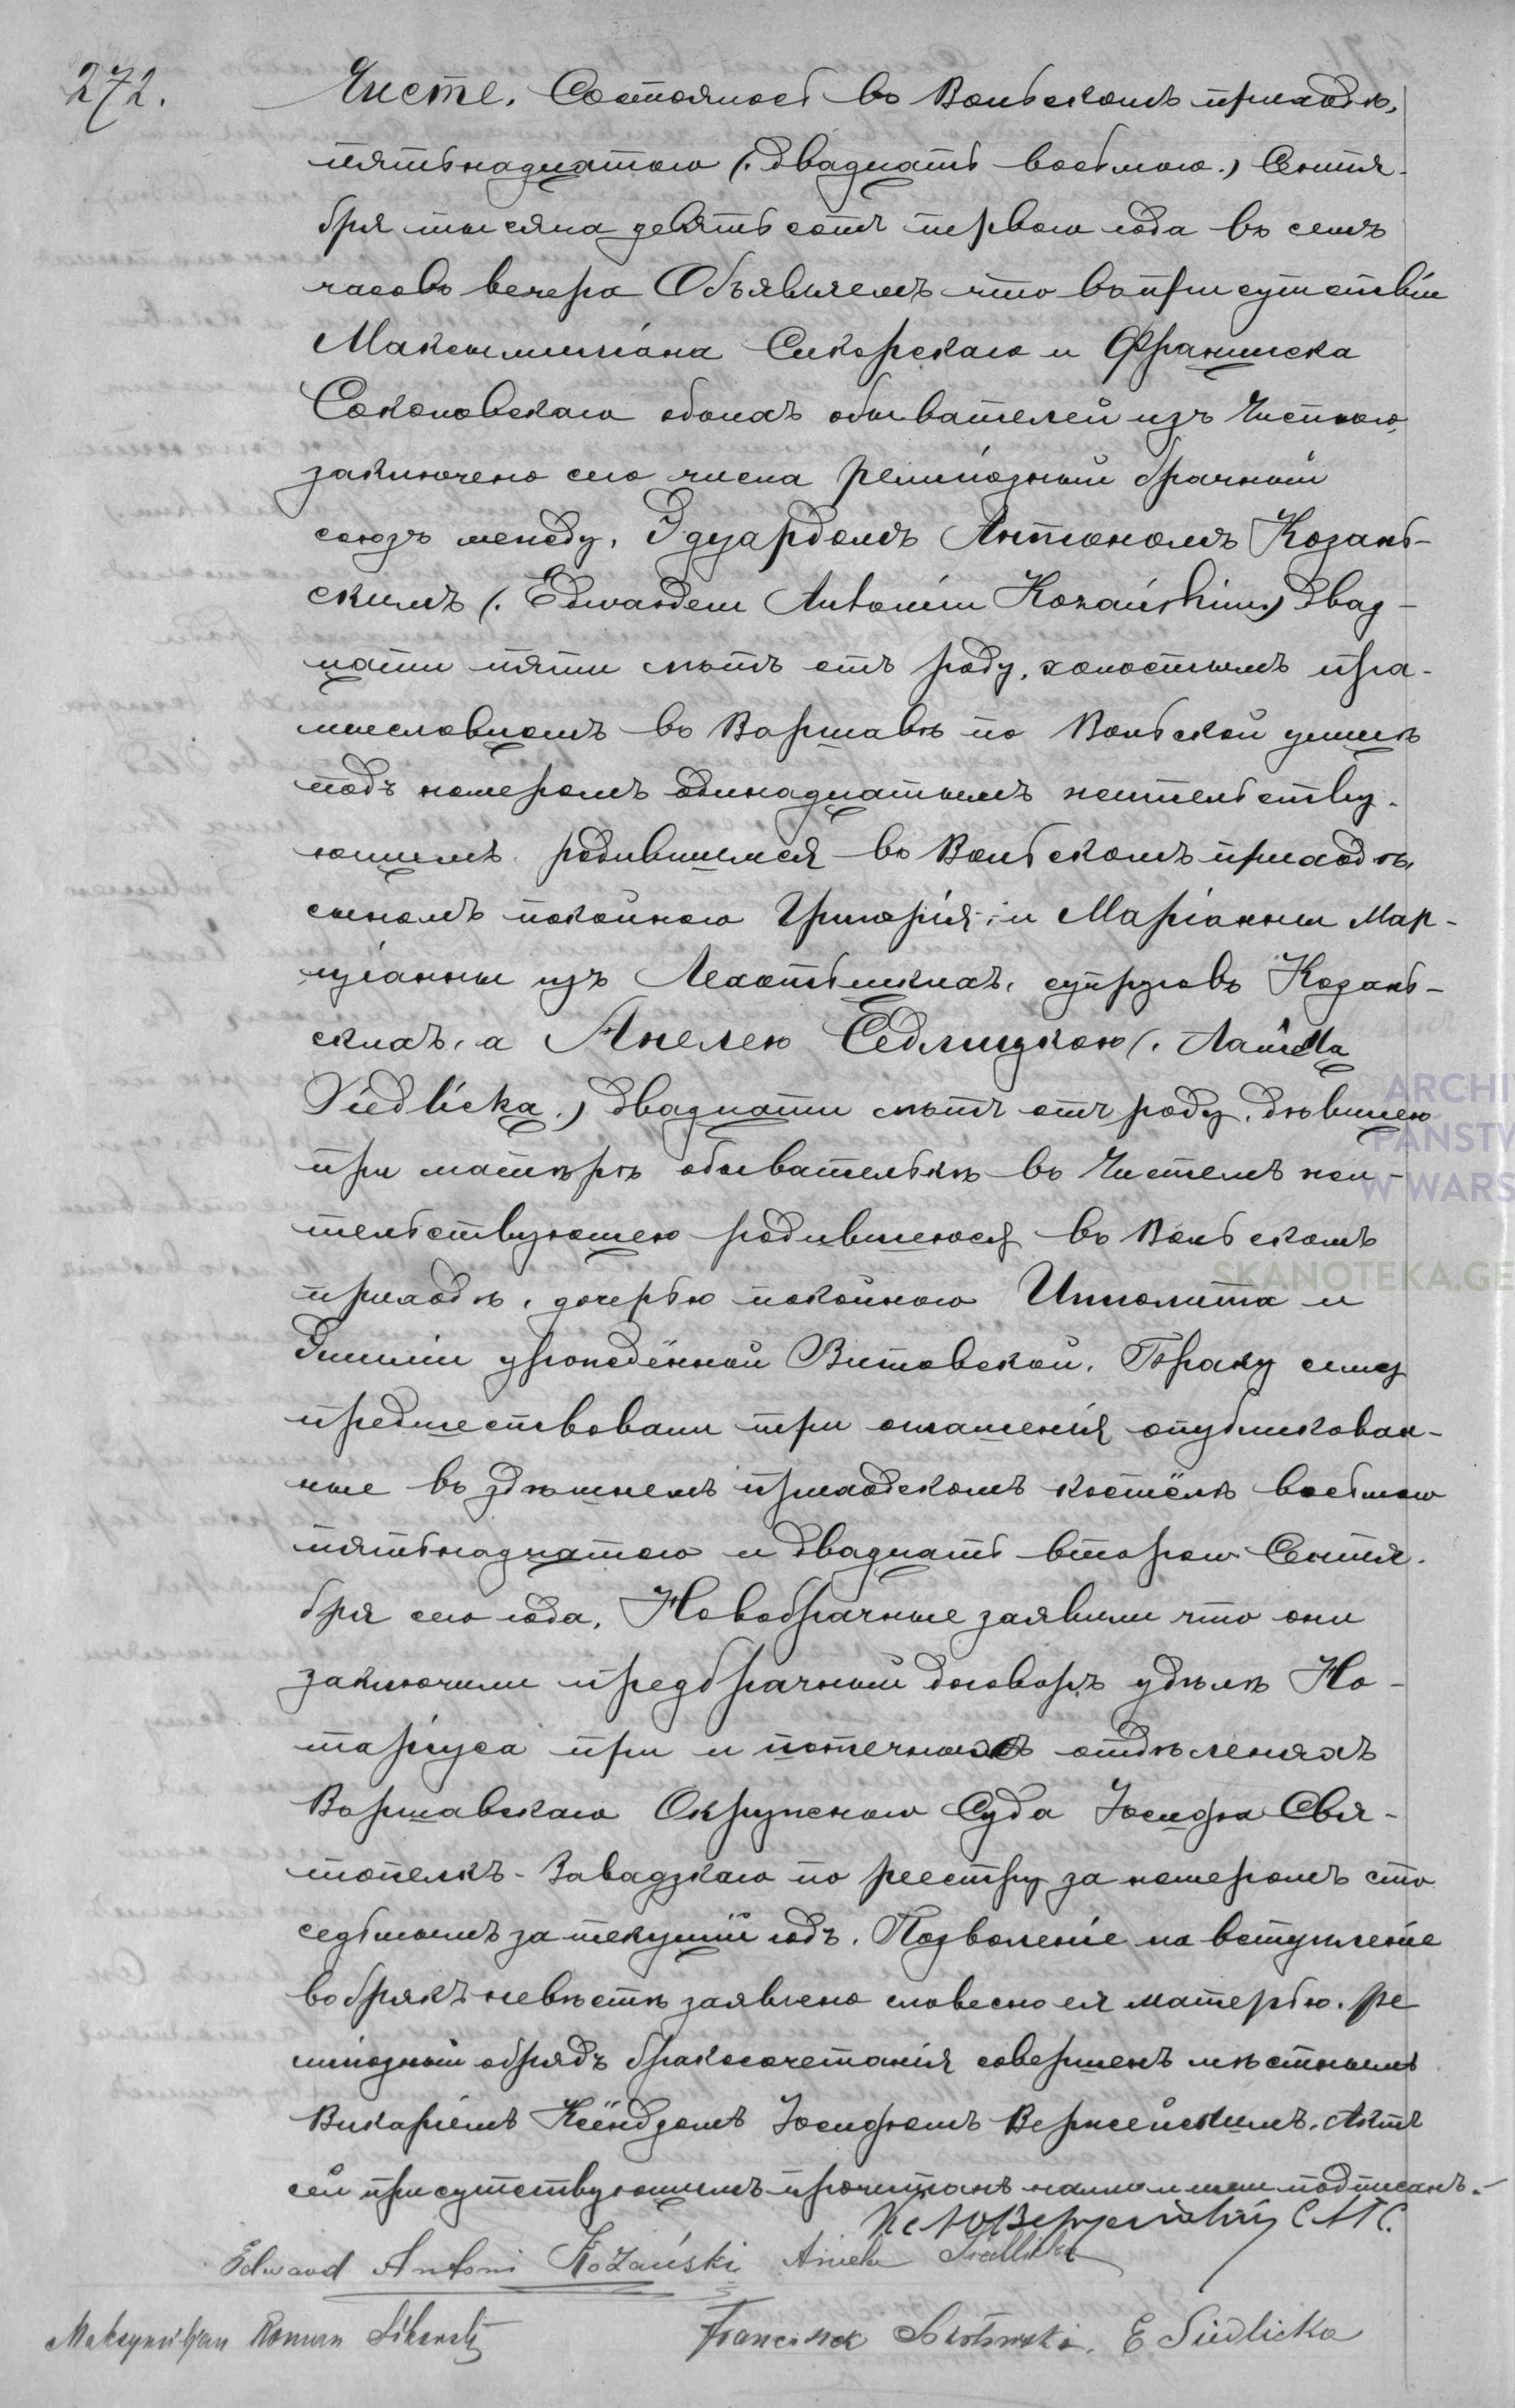 272.
Чисте. Состоялось въ Вольскомъ приходѣ,
пятьнадцатого (. двадцать восьмого.) Сентя-
бря тысяча девятьсотъ первого года въ семъ
часовъ вечера Объявляемъ что въ присутствіи
Максымиліана Сикорскаго и Франциска
Соколовскаго обоихъ обывателей изъ Чистого,
заключено сего числа религіозный брачный
союзъ между, Эдуардомъ Антономъ Козань-
скимъ (. Edwardem Antonim Kozańskim.) двад-
цати пяти лѣтъ отъ роду, холостымъ про-
мысловцомъ въ Варшавѣ по Вольской улицѣ
подъ номеромъ одинадцатымъ жительству-
ющимъ родившимся въ Вольскомъ приходѣ,
сыномъ покойного Григорія и Маріанны Мар-
ціанны изъ супруговъ Козань-
скихъ, а Анелею Седлицкою (.
Siedlicka.) двадцати лѣтъ отъ роду, дѣвицею
при матѣрѣ обывателькѣ въ Чистемъ жи-
тельствующею родившеюся въ Вольскомъ
приходѣ, дочерью покойного Ипполита и
Эмиліи урожденной Витовской. Браку сему
предшествовали три оглашенія опубликован-
ные въ здѣшнемъ приходскомъ костёлѣ восьмого
пятьнадцатого и двадцать второго Сентя-
бря сего года. Новобрачные заявили что они
заключили предбрачный договоръ удѣлѣ Но-
таріуса при ипотечныхъ отдѣленяхъ
Варшавскаго Окружного Суда Іосифа Свя-
тополкъ-Завадзкаго по реестру за номеромъ сто
седьмымъ за текущій годъ. Позволеніе на вступленіе
въ бракъ невѣстѣ заявлено словесно ея матерью. Ре
лигіозный обрядъ бракосочетанія совершенъ мѣстнымъ
Викаріемъ Ксёндзомъ Іосифомъ Вержейскимъ. Актъ
сей присутствующимъ прочитанъ нами и ими подписанъ.
Edward Antoni Kozański Aniela Siedlicka
Maksymiljan Roman Sikorski
Franciszek Sokołowski. E. Siedlicka
ARCHI
PAŃSTW
W WARS
SKANOTEKA.GE